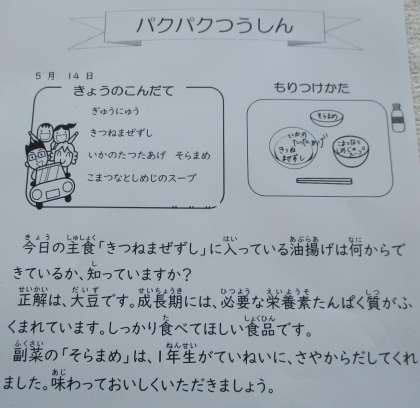 パクパクつうしん
5月 14日
きょうのこんだて
ぎゅうにゅう
きつねまぜずし
いかのたつたあげ そらまめ
こまつなとしめじのスープ
もりつけかた
そらまめ
いかの
たつたあげ
きつね
まぜずし
こまつなと
しめじの
スープ
今日の主食「きつねまぜずし」に入っている油揚げは何からで
きているか、知っていますか？
正解は、大豆です。成長期には、必要な栄養素たんぱく質がふ
くまれています。しっかり食べてほしい食品です。
副菜の「そらまめ」は、1年生がていねいに、さやからだしてくれ
ました。味わっておいしくいただきましょう。